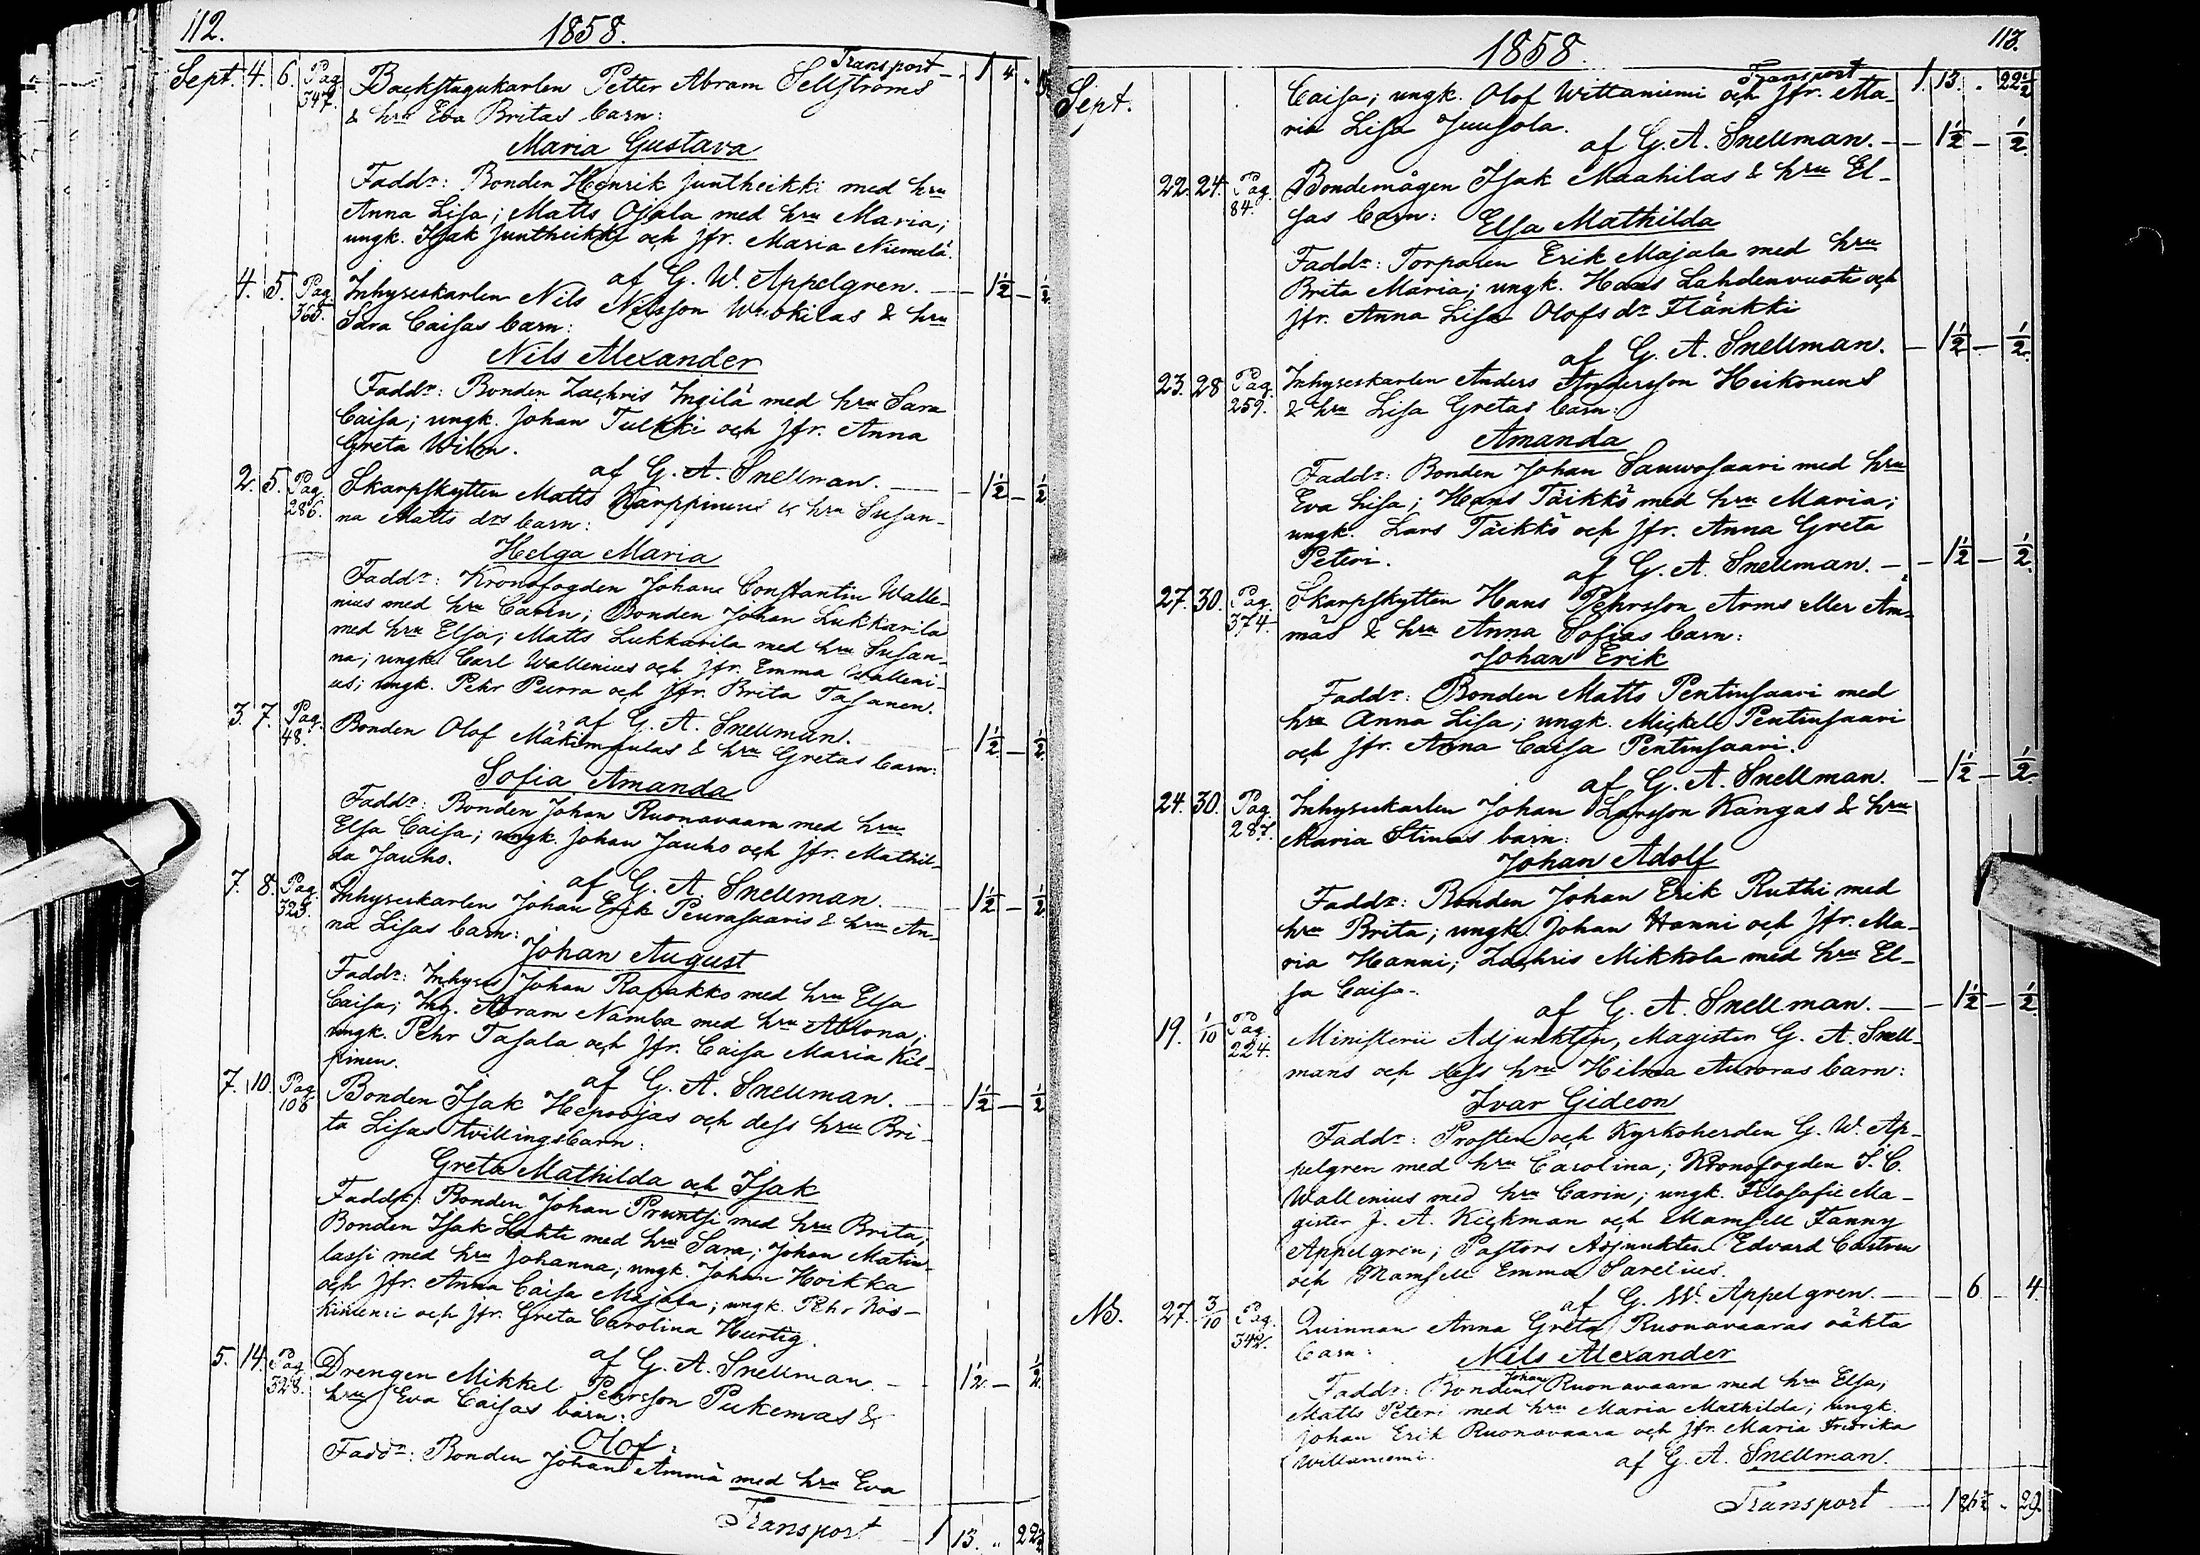 112.
1858.
Transport - 1 4 "
Sept. 4. 6. Pag. 347. Backstugukarlen Petter Abram Sellströms
& hru Eva Britas barn:
Maria Gustava
Faddr: Bonden Henrik Juntheikki med hru
Anna Lisa; Matts Ojala med hru Maria;
ungk. Isak Juntheikki och jfr. Maria Niemelä.
af G. W. Appelgren. — 1½ — ½
4. 5. Pag. 365. Inhyseskarlen Nils Nilsson Wuokilas & hru
Sara Caisas barn:
Nils Alexander
Faddr: Bonden Zachris Ingilä med hru Sara
Caisa; ungk. Johan Tulkki och jfr. Anna
Greta Wilen.
af G. A. Snellman. — 1½ — ½
2. 5. Pag. 286. Skarpskytten Matts Karppinens & hru Susan-
na Matts drs barn:
Helga Maria
Faddr: Kronofogden Johan Constantin Walle-
nius med hru Carin; Bonden Johan Lukkarila
med hru Elsa; Matts Lukkarila med hru Susan-
na; ungk. Carl Wallenius och jfr. Emma Walleni-
us; ungk. Pehr Purra och jfr. Brita Tasanen.
af G. A. Snellman. — 1½ — ½
3. 7. Pag. 48. Bonden Olof Mäkimaulas & hru Gretas barn:
Sofia Amanda
Faddr: Bonden Johan Ruonavaara med hru
Elsa Caisa; ungk. Johan Jauho och jfr. Mathil-
da Jauho.
af G. A. Snellman. — 1½ — ½
7. 8. Pag. 323. Inhyseskarlen Johan Erik Peurasaaris & hru An-
na Lisas barn:
Johan August
Faddr: Inhyses Johan Rapakko med hru Elsa
Caisa; Inh. Abram Namba med hru Ablona;
ungk. Pehr Tasala och jfr. Caisa Maria Kil-
pinen.
af G. A. Snellman. — 1½ — ½
7. 10. Pag. 106 Bonden Isak Hepoojas och dess hru Bri-
ta Lisas tvillingsbarn:
Greta Mathilda och Isak
Faddr: Bonden Johan Pruntsi med hru Brita;
Bonden Isak Lahti med hru Sara; Johan Matin-
lassi med hru Johanna; ungk. Johan Hoikka
och jfr. Anna Caisa Majala; ungk. Pehr Kös-
och jfr. Greta Carolina Hurtig.
af G. A. Snellman. — 1½ — ½
5. 14. Pag. 328. Drengen Mikkel Pehrsson Pukemas &
hru Eva Caisas barn:
Olof.
Faddr: Bonden Johan Ämmä med hru Eva
Transport 1 13. " 22½
113.
1858.
Transport 1. 13. " 22½
Sept. Caisa; ungk. Olof Wittaniemi och jfr. Ma-
ria Lisa Juusola.
af G. A. Snellman. — 1½ — ½
22. 24. Pag. 84. Bondemågen Isak Maahilas & hru El-
sas barn: Elsa Mathilda
Faddr: Torparen Erik Majala med hru
Brita Maria; ungk. Hans Lahdenvuoti och
jfr. Anna Lisa Olofs dr Flänkki
af G. A. Snellman. — 1½ — ½
23. 28 Pag. 259. Inhyseskarlen Anders Andersson Heikonens
& hru Lisa Gretas barn:
Amanda
Faddr: Bonden Johan Sauwosaari med hru
Eva Lisa; Hans Täikkö med hru Maria;
ungk. Lars Täikkö och jfr. Anna Greta
Peteri.
af G. A. Snellman. — 1½ — ½
27. 30. Pag. 374. Skarpskytten Hans Pehrsson Arms eller Äm-
mäs & hru Anna Sofias barn:
Johan Erik
Faddr: Bonden Matts Pentinsaari med
hru Anna Lisa; ungk. Mickell Pentinsaari
och jfr. Anna Caisa Pentinsaari.
af G. A. Snellman. — 1½ — ½
24. 30. Pag. 287. Inhyseskarlen Johan Larsson Kangas & hru
Maria Stinas barn:
Johan Adolf
Faddr: Bonden Johan Erik Ruthi med
hru Brita; ungk. Johan Hanni och jfr. Ma-
ria Hanni; Zachris Mikkola med hru El-
sa Caisa.
af G. A. Snellman. — 1½ — ½
19. 1/10 Pag. 224. Ministerii Adjunkten, Magister G. A. Snell-
mans och dess hru Hilma Auroras barn:
Ivar Gideon
Faddr: Prosten och Kyrkoherden G. W. Ap-
pelgren med hru Carolina; Kronofogden J. C.
Wallenius med hru Carin; ungk. Filosofie Ma-
gister J. A. Kickman och Mamsell Fanny
Appelgren; Pastors Adjunkten Edvard Castren
och Mamsell Emma Sarelius.
af G. W. Appelgren. — 6 — 4.
NB. 27. 3/10 Pag. 342. Quinnan Anna Greta Ruonavaaras oäkta
barn: Nils Alexander
Faddr: Bonden Johan Ruonavaara med hru Elsa;
Matts Peteri med hru Maria Mathilda; ungk.
Johan Erik Ruonavaara och jfr. Maria Fredrika
Willaniemi.
af G. A. Snellman.
Transport 1 26½ " 29.